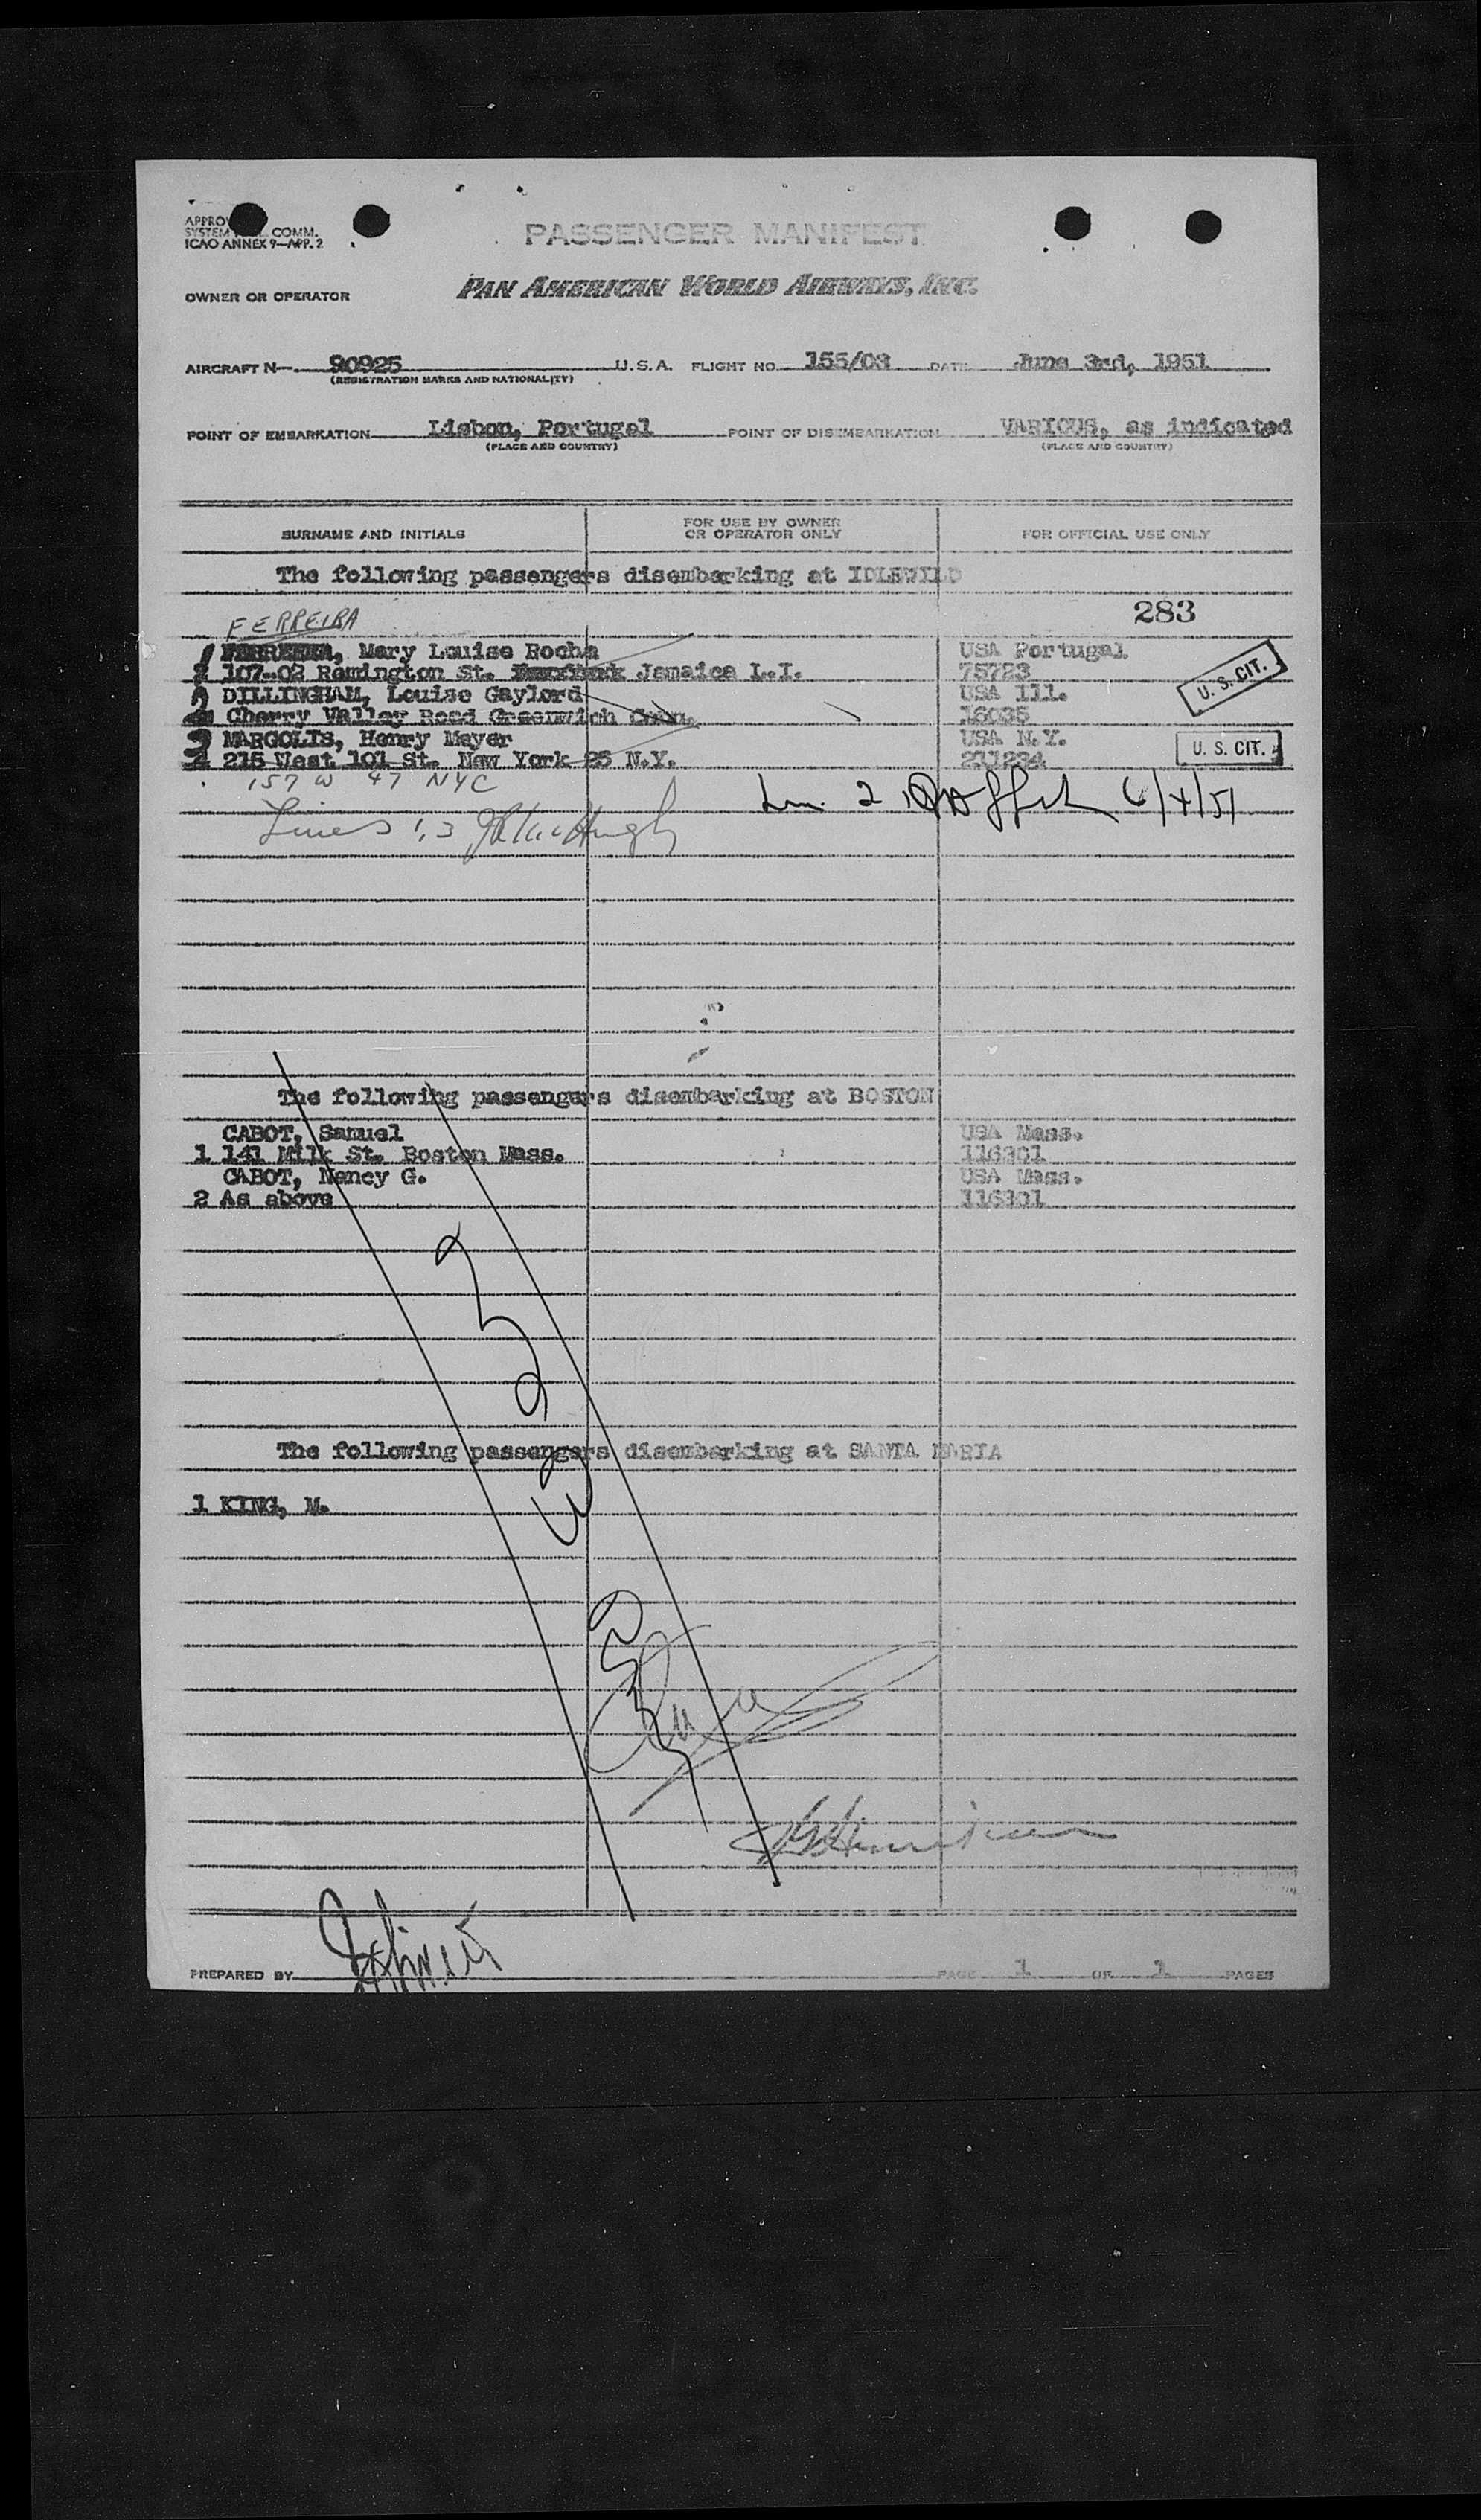 SYSTEM COMM.
ICAO ANNEX 9—APP. 2
PASSENGER MANIFEST
OWNER OR OPERATOR PAN AMERICAN WORLD AIRWAYS, INC.
AIRCRAFT N— 90925 U.S.A. FLIGHT NO. 155/03 DATE June 3rd, 1951
(REGISTRATION MARKS AND NATIONALITY)
POINT OF EMBARKATION Lisbon, Portugal POINT OF DISEMBARKATION VARIOUS, as indicated
(PLACE AND COUNTRY) (PLACE AND COUNTRY)
SURNAME AND INITIALS FOR USE BY OWNER OR OPERATOR ONLY FOR OFFICIAL USE ONLY
The following passengers disembarking at IDLEWILD
283
FERREIRA
1 Mary Louise Rocha USA Portugal
107-02 Remington St. Jamaica L.I. 75723
U. S. CIT.
2 DILLINGHAM, Louise Gaylord USA Ill.
Cherry Valley Road Greenwich Conn. 16035
3 MARGOLIS, Henry Meyer USA N.Y.
215 West 101 St. New York 25 N.Y. 211234
U. S. CIT.
157 W 47 NYC
2 6/4/51
Lines 1,3
The following passengers disembarking at BOSTON
CABOT, Samuel USA Mass.
1 141 Milk St. Boston Mass. 116301
CABOT, Nancy G. USA Mass.
2 As above 116301
The following passengers disembarking at SANTA MARIA
1 KING, M.
PREPARED BY PAGE 1 OF 1 PAGES